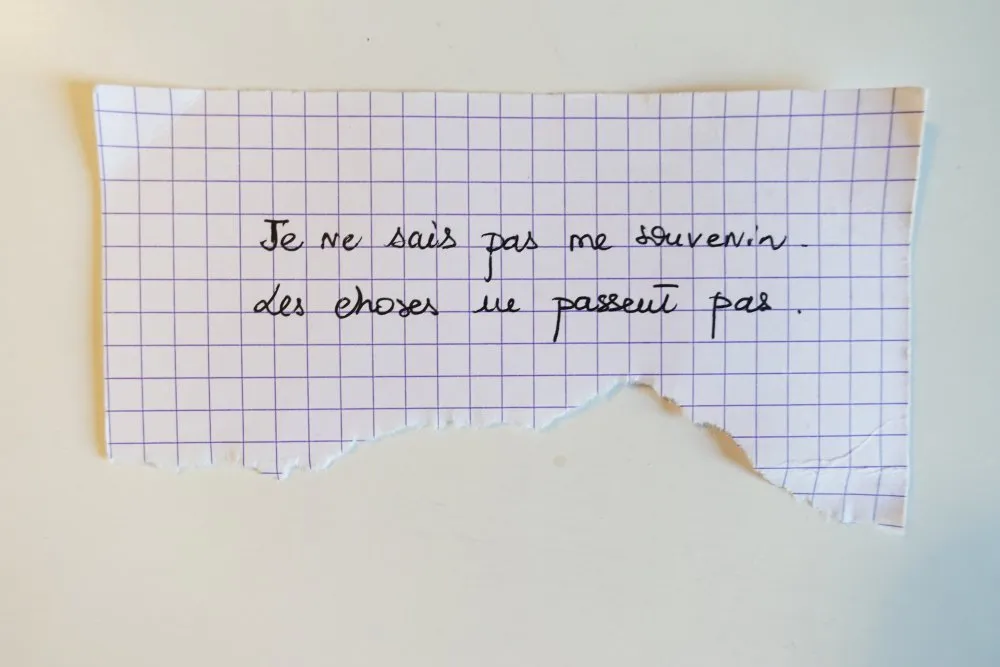 Je ne sais pas me souvenir.
Les choses ne passent pas.